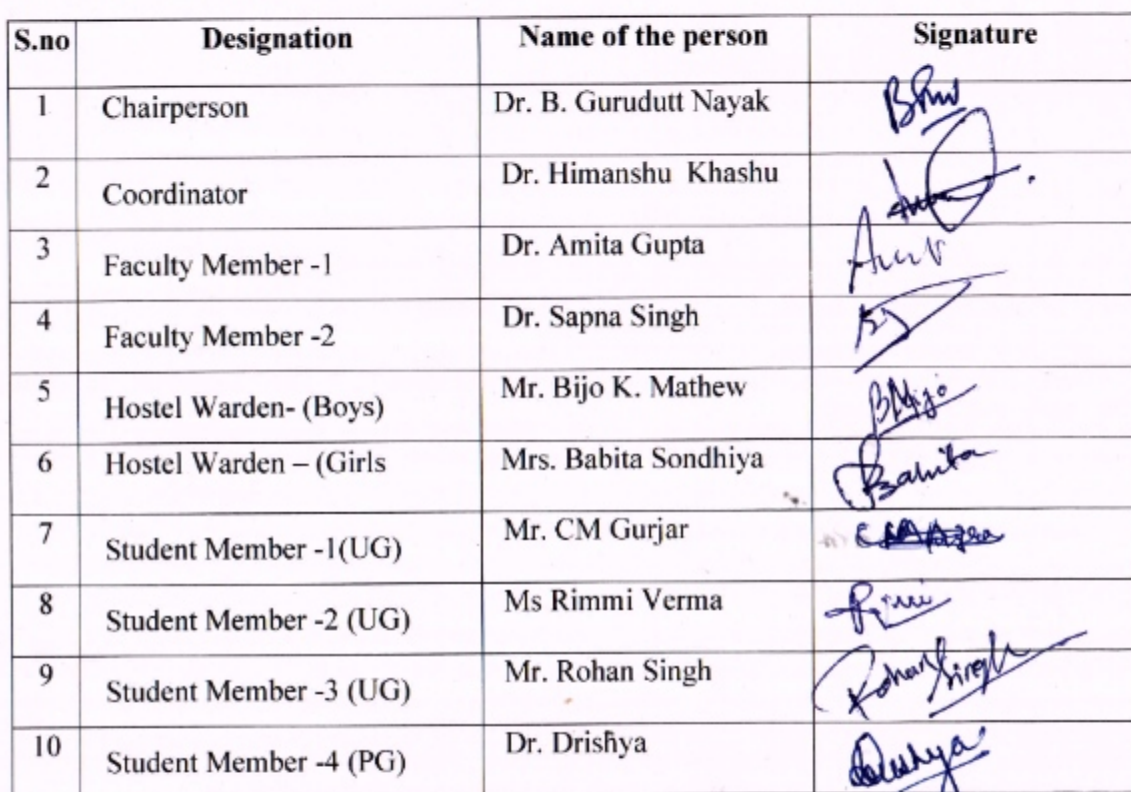 S.no Designation Name of the person Signature
1 Chairperson Dr. B. Gurudutt Nayak
2 Coordinator Dr. Himanshu Khashu
3 Faculty Member -1 Dr. Amita Gupta
4 Faculty Member -2 Dr. Sapna Singh
5 Hostel Warden- (Boys) Mr. Bijo K. Mathew BMijo
6 Hostel Warden – (Girls Mrs. Babita Sondhiya Babita
7 Student Member -1(UG) Mr. CM Gurjar
8 Student Member -2 (UG) Ms Rimmi Verma
9 Student Member -3 (UG) Mr. Rohan Singh Rohan Singh
10 Student Member -4 (PG) Dr. Drishya Drishya